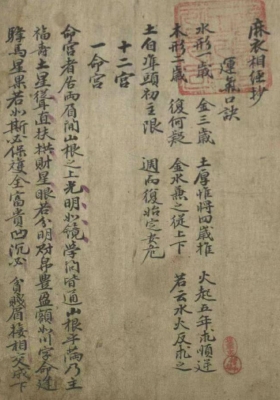 麻衣相便抄
運氣口訣
水形一歲 金三歲 土厚惟將四歲推 火起五年求順逆
木形二歲 復何疑 金水兼之從上下 若云水火反求之
土自準頭初主限 週而復始定安危
十二宮
一命宮
命宮者居兩眉間山根之上光明如鏡學問皆通山根平滿乃主
福壽土星聳直扶拱財星眼若分明財帛豐盈額如川字命逢
驛馬星果若如斯必保雙全富貴凹沉必貧賤眉接相交成下